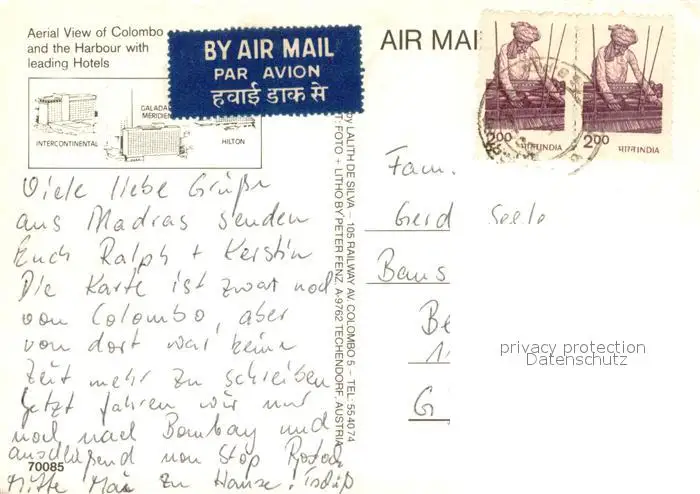 Aerial View of Colombo
and the Harbour with
leading Hotels
INTERCONTINENTAL
GALADA
MERIDIEN
HILTON
BY AIR MAIL
PAR AVION
हवाई डाक से
AIR MAI
2.00
भारत INDIA
2.00
भारत INDIA
Viele liebe Grüße
aus Madras senden
Euch Ralph + Kerstin
Die Karte ist zwar noch
von Colombo, aber
von dort war keine
Zeit mehr zu schreiben
Jetzt fahren wir nur
noch nach Bombay und
anschließend non Stop Rostock
Mitte Mai zu Hause. Tschüß
70085
by LALITH DE SILVA – 105 RAILWAY AV. COLOMBO 5 – TEL: 554074
T: FOTO + LITHO BY PETER FENZ, A-9762 TECHENDORF, AUSTRIA
Fam.
Gerd Seele
Baus
Be
1
G
privacy protection
Datenschutz